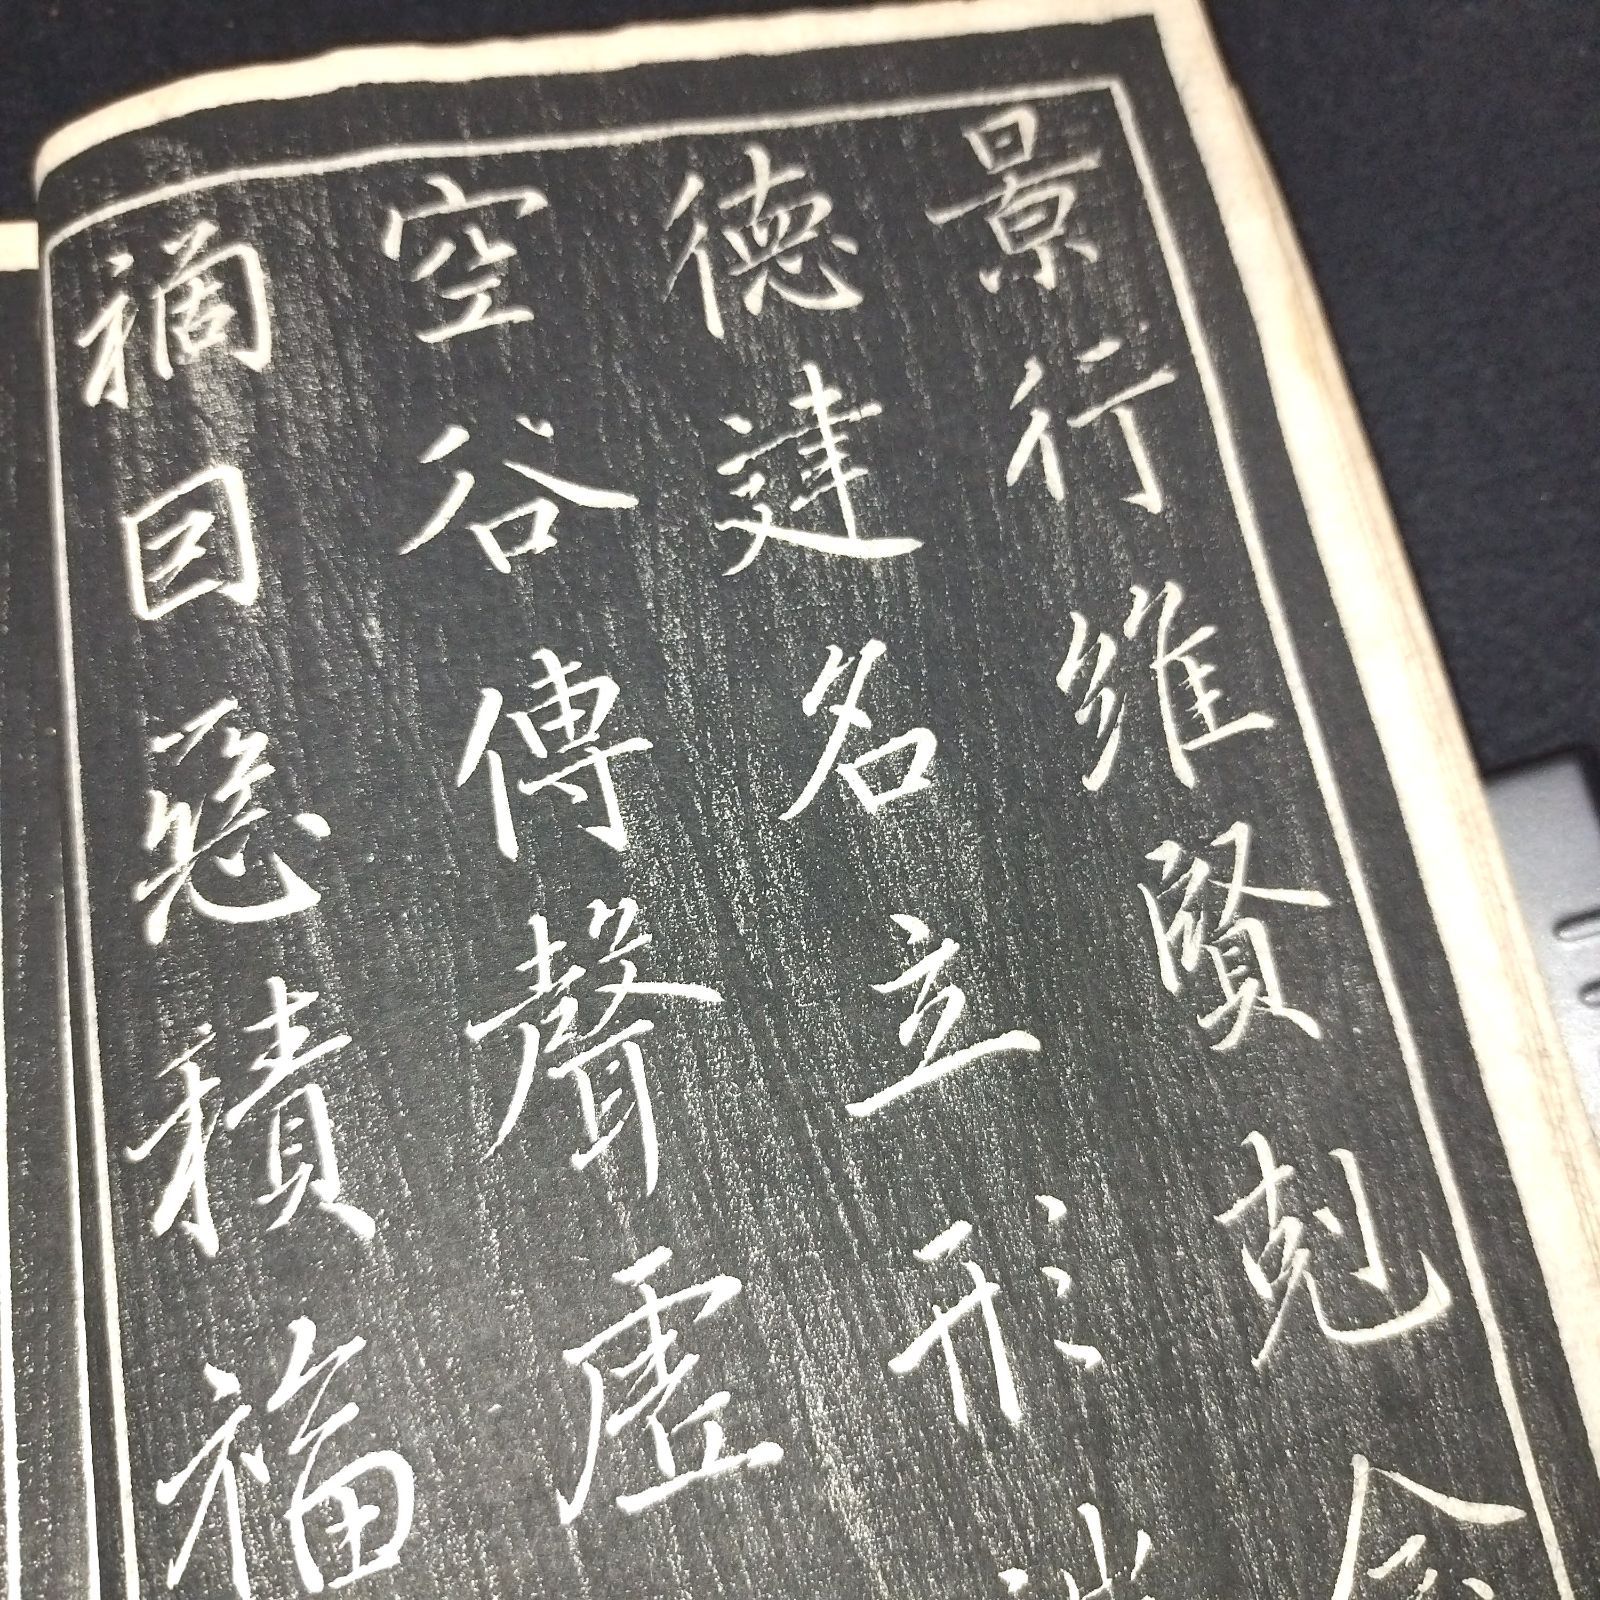 景行維賢剋念
德建名立形
空谷傳聲虛
禍因惡積福